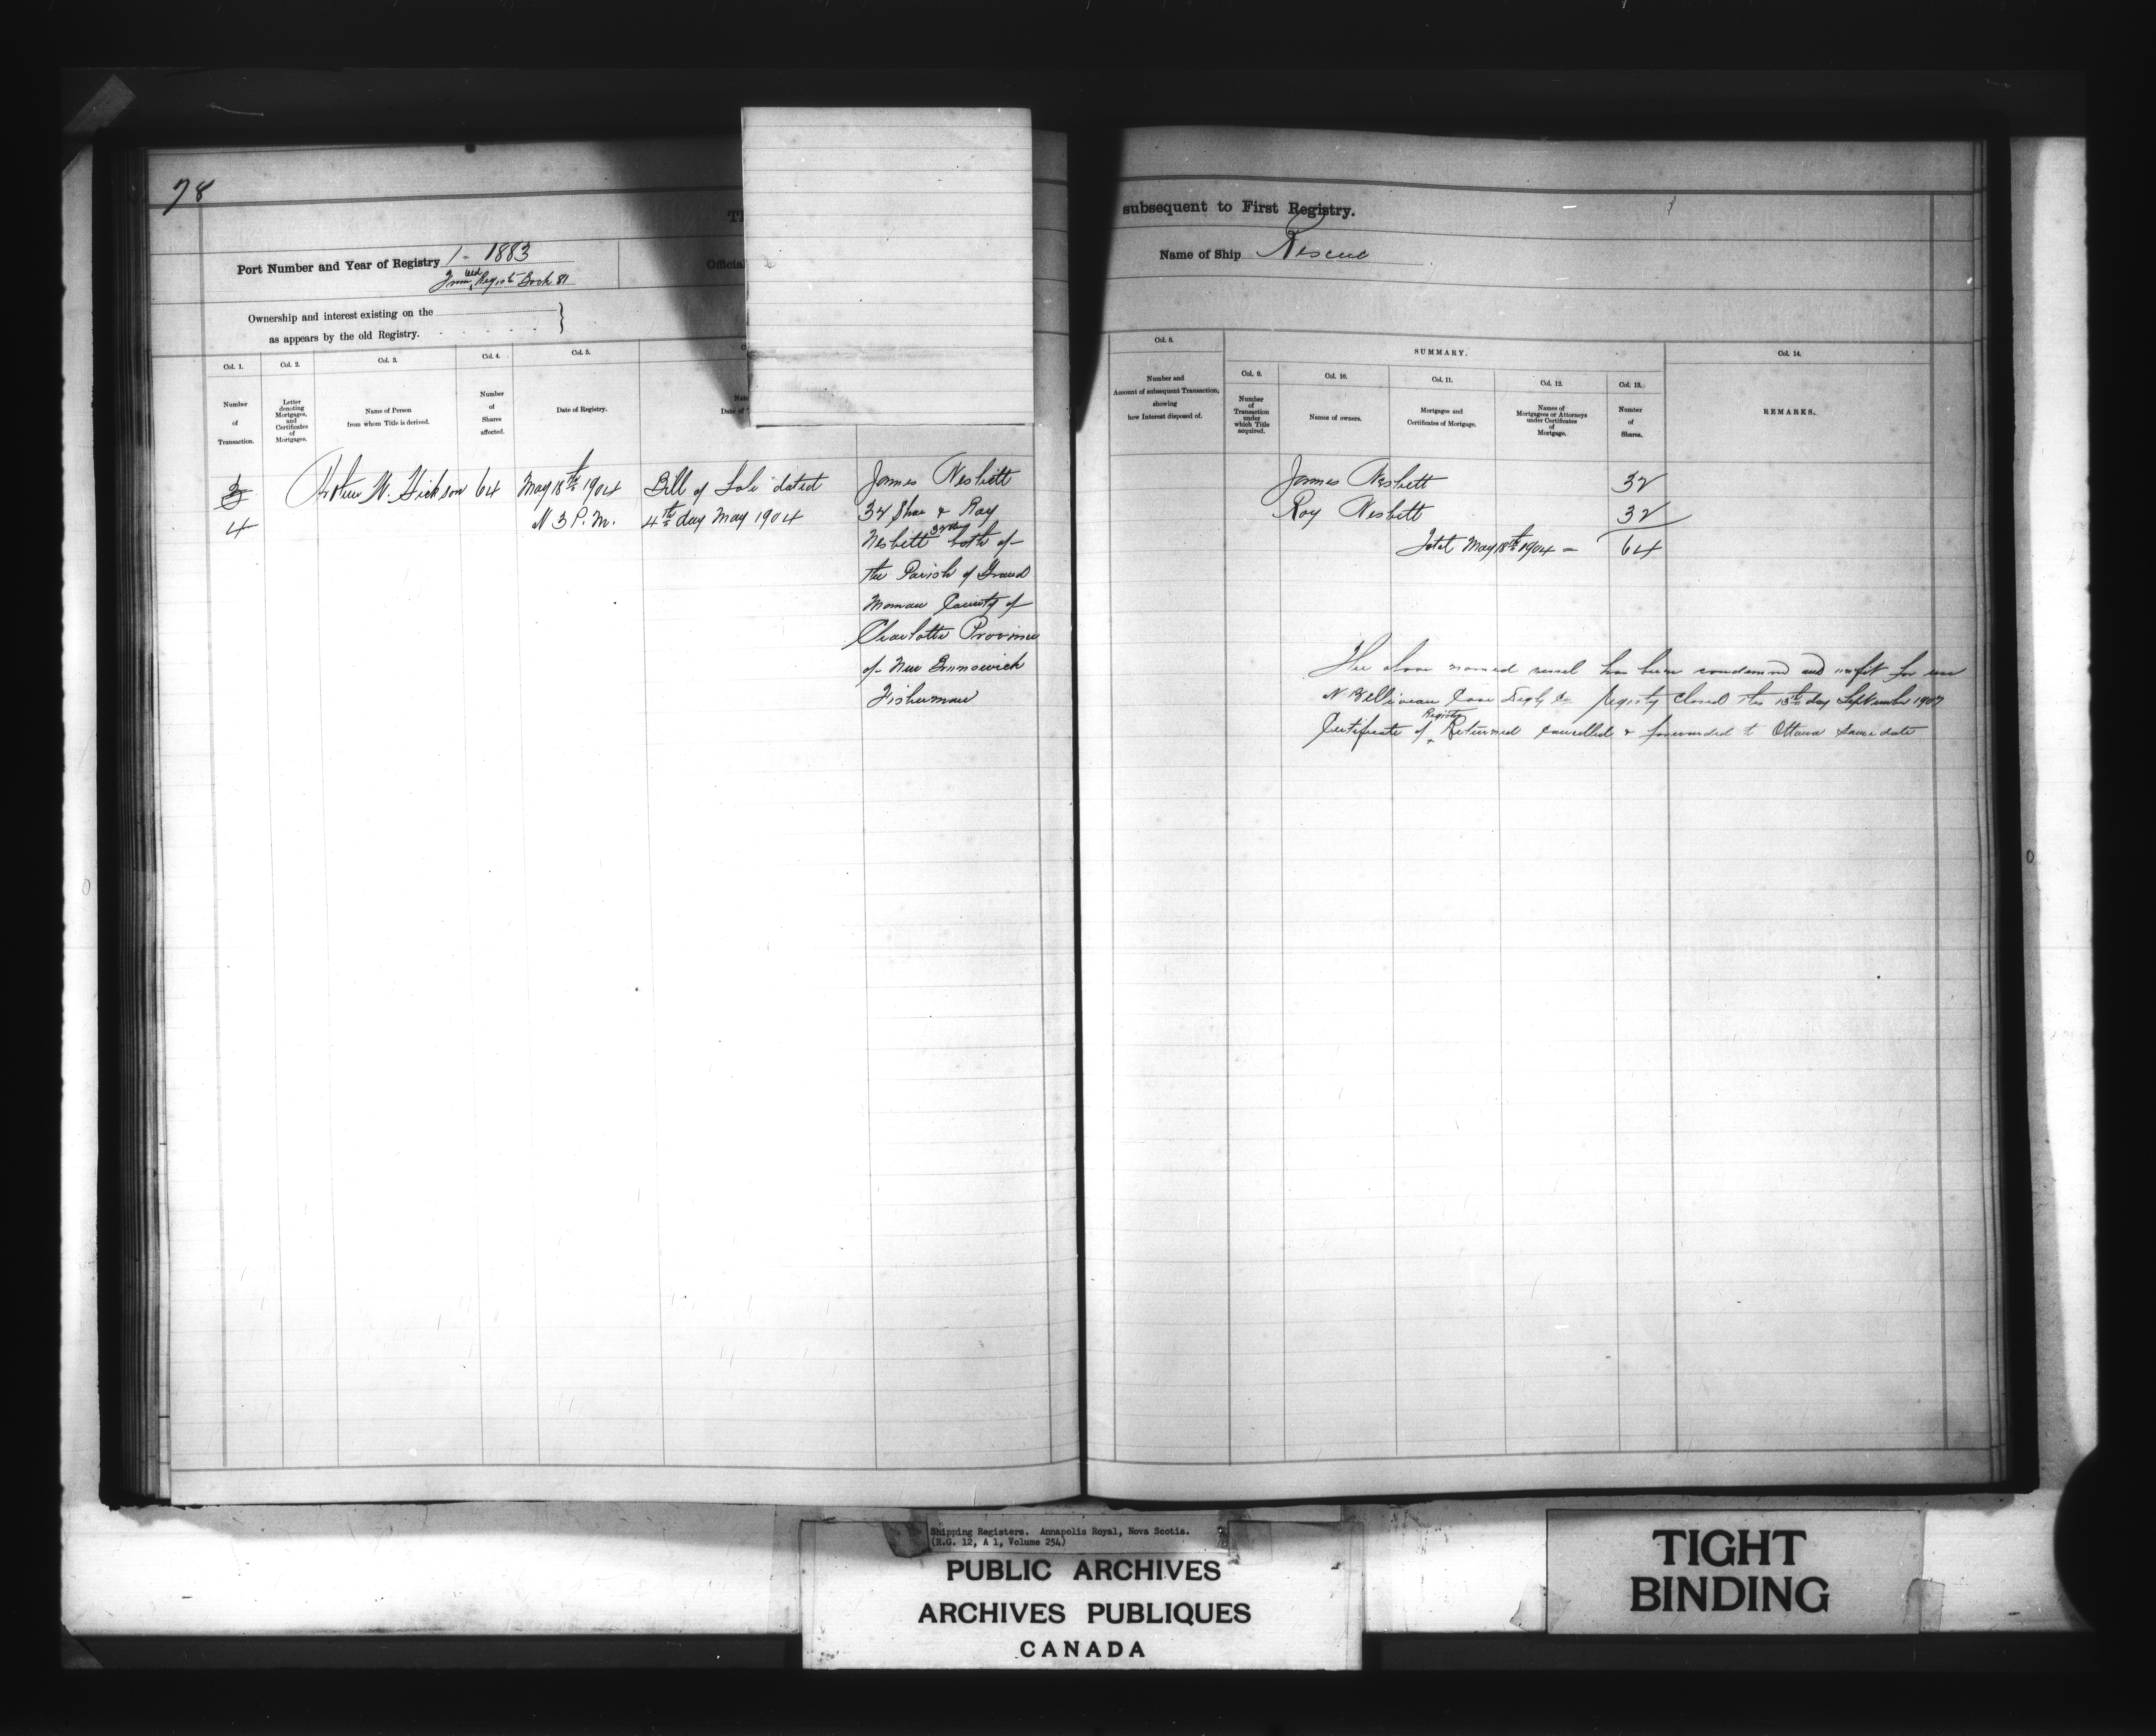 78
subsequent to First Registry.
Port Number and Year of Registry 1 - 1883
From old Registr Book 81
Official
Name of Ship Rescue
Ownership and interest existing on the
as appears by the old Registry.
Col. 1.
Col. 2.
Col. 3.
Col. 4.
Col. 5.
Number
of
Transaction.
Letter
denoting
Mortgages,
and
Certificates
of
Mortgages.
Name of Person
from whom Title is derived.
Number
of
Shares
affected.
Date of Registry.
Date of
3
4
W. Hickson 64
May 18th 1904
3 P.M.
Bill of Sale dated
4th day May 1904
James Nesbitt
32 Shre & Roy
Nesbitt 32 both of
the Parish of Grand
Manan County of
Charlotte Province
of New Brunswick
Fisherman
Col. 8.
Number and
Account of subsequent Transaction,
showing
how Interest disposed of.
SUMMARY.
Col. 9.
Number
of
Transaction
under
which Title
acquired.
Col. 10.
Names of owners.
Col. 11.
Mortgages and
Certificates of Mortgage.
Col. 12.
Names of
Mortgagees or Attorneys
under Certificates
of
Mortgage.
Col. 13.
Number
of
Shares.
Col. 14.
REMARKS.
James Nesbitt 32
Roy Nesbitt 32
Total May 18th 1904 = 64
The above named vessel has been condemned and unfit for use
N Belliveau Cove Digby Co Registry Closed this 13th day September 1907
Certificate of Registry Returned Cancelled & forwarded to Ottawa same date
Shipping Registers. Annapolis Royal, Nova Scotia.
(R.G. 12, A 1, Volume 254)
PUBLIC ARCHIVES
ARCHIVES PUBLIQUES
CANADA
TIGHT
BINDING